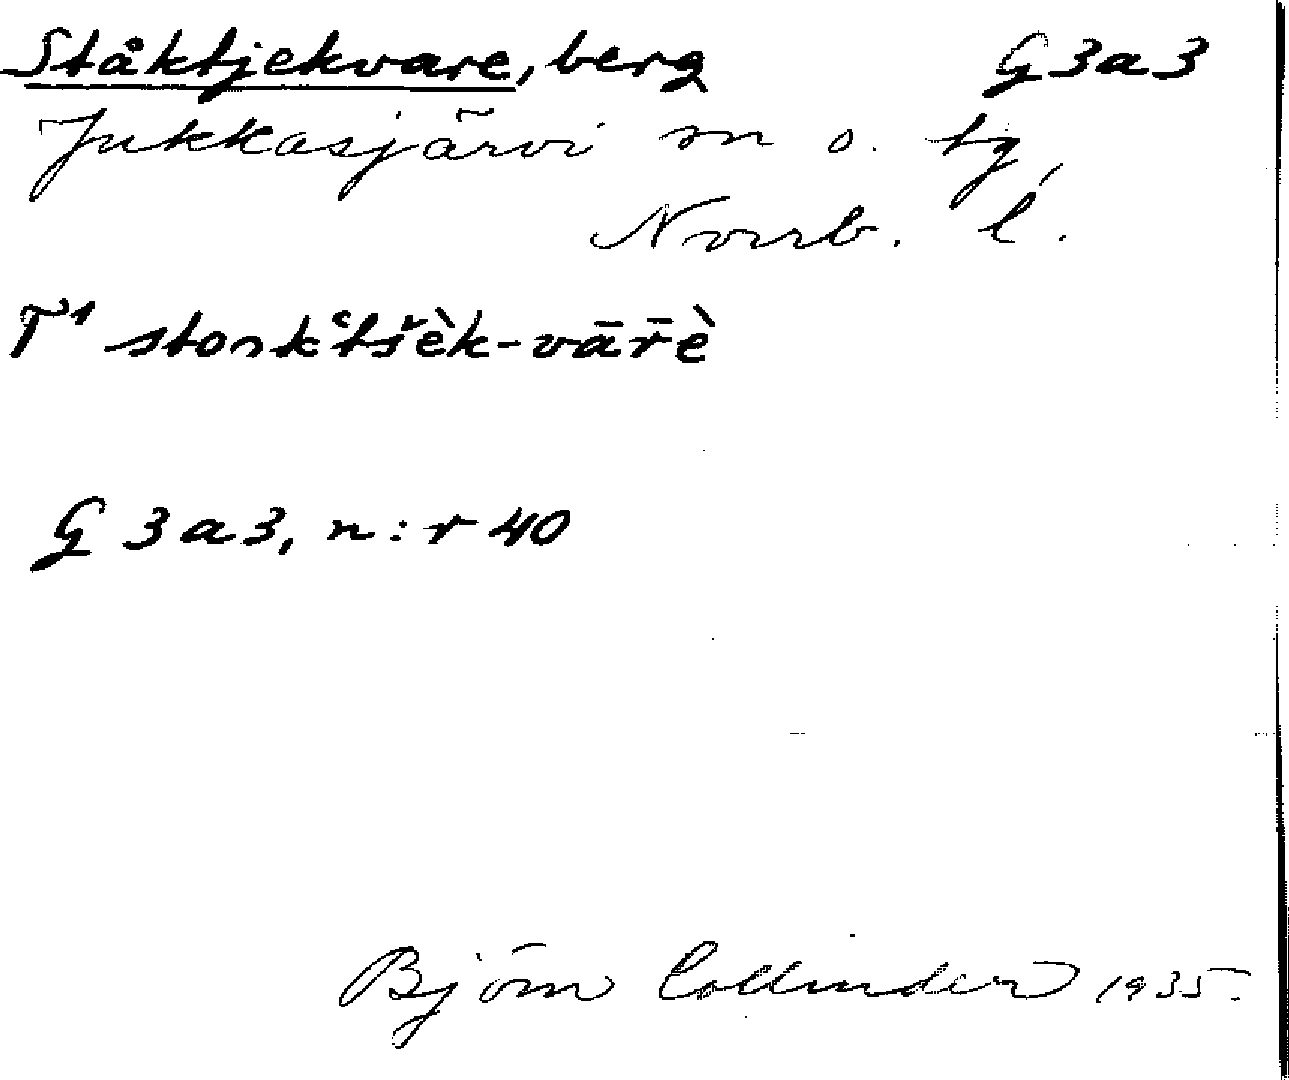 Ståktjekvare, berg G 3 a 3
Jukkasjärvi sn o. tg,
Norrb. l.
T¹ stoŋkʿtšèk-vār̄è
G 3 a 3, n:r 40
Björn Collinder 1935.